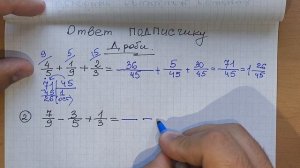 Ответ подписчику
Дроби
9 5 15
4/5 + 1/9 + 2/3 = 36/45 + 5/45 + 30/45 = 71/45 = 1 26/45
71 | 45
45 | 1
26 (ост)
② 7/9 - 3/5 + 1/3 =